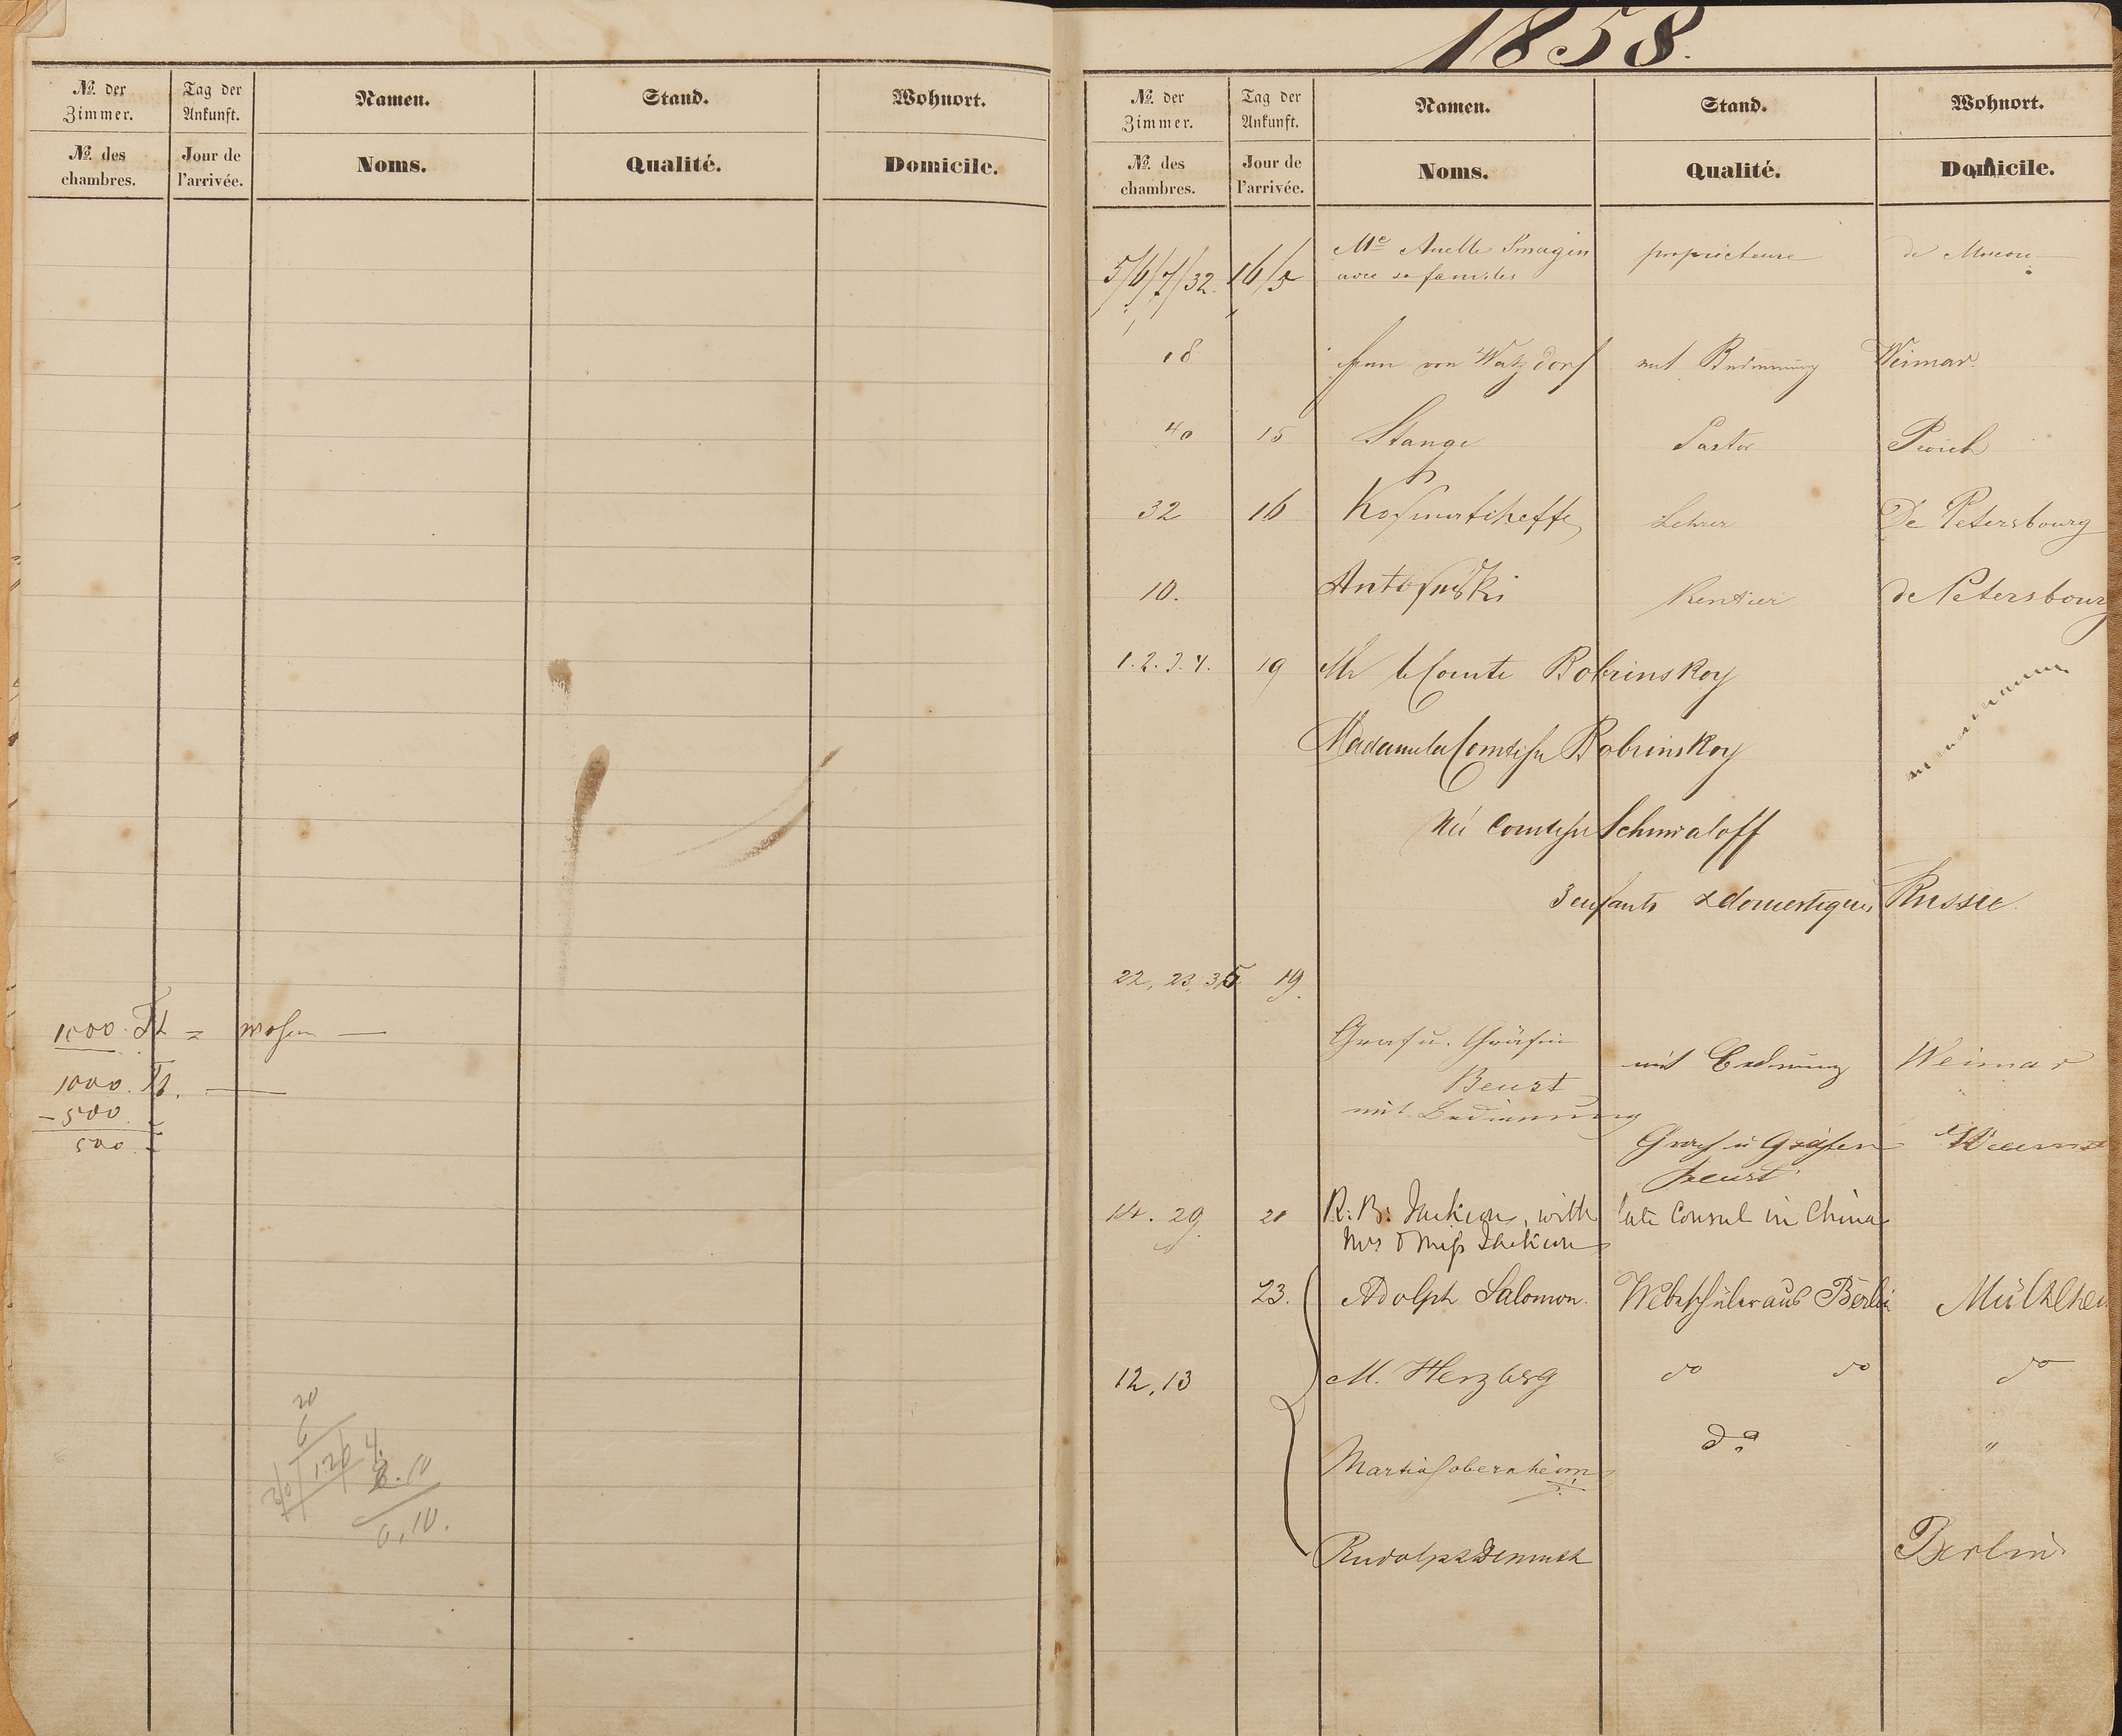 № der Zimmer.
Tag der Ankunft.
Namen.
Stand.
Wohnort.
№ des chambres.
Jour de l'arrivée.
Noms.
Qualité.
Domicile.
1000
1000.
- 500
500
20
6
120
6.10.
1858.
№ der Zimmer.
Tag der Ankunft.
Namen.
Stand.
Wohnort.
№ des chambres.
Jour de l'arrivée.
Noms.
Qualité.
Domicile.
5/6/7/32. 16/5 Me Smagin proprietaire de Moscou
avec sa
18 Frau von Watzdorf mit Bedienung Weimar.
40 15 Stange Pastor
32 16 Lehrer De Petersbourg
10. Rentier de Petersbourg
1.2.3.4. 19 Mr le Comte Bobrinskoy
Madame la Comtesse Bobrinskoy
Née Comtesse
3 enfants & domestiques Russie.
22, 23, 35 19.
Graf u. Gräfin
Beust
mit Bedienung
mit Bedienung Weimar
Graf u Gräfin
Beust
14. 29. 21 R. B. Jackson, with late Consul in China
Mrs & Miss Jackson
23. Adolph Salomon. Webschüler aus Berlin Mülhei
12, 13 M. Herzberg do do do
do "
Rudolph Berlin.